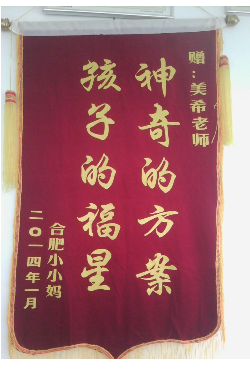 赠：美希老师
神奇的方案
孩子的福星
合肥小小妈
二〇一四年一月